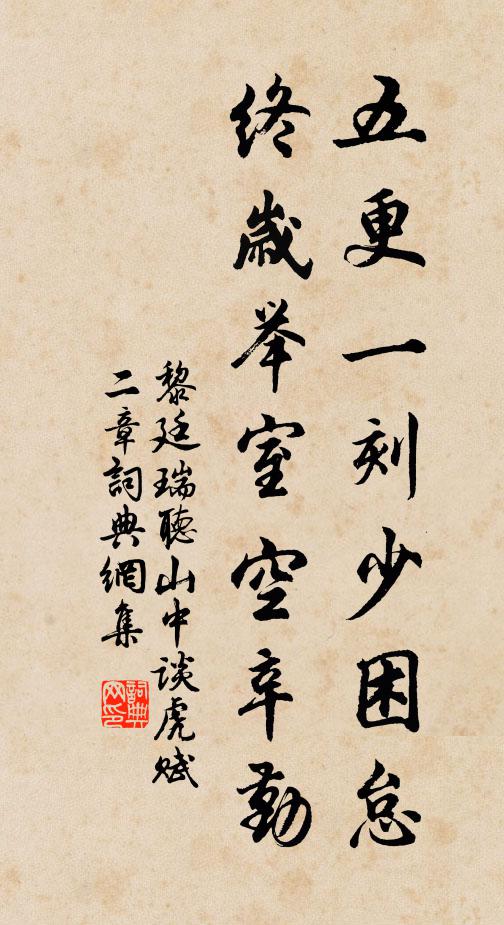 五更一刻少困怠
终歲举室空辛勤
黎廷瑞聽山中谈虎赋
二章詞典網集
詞典网印